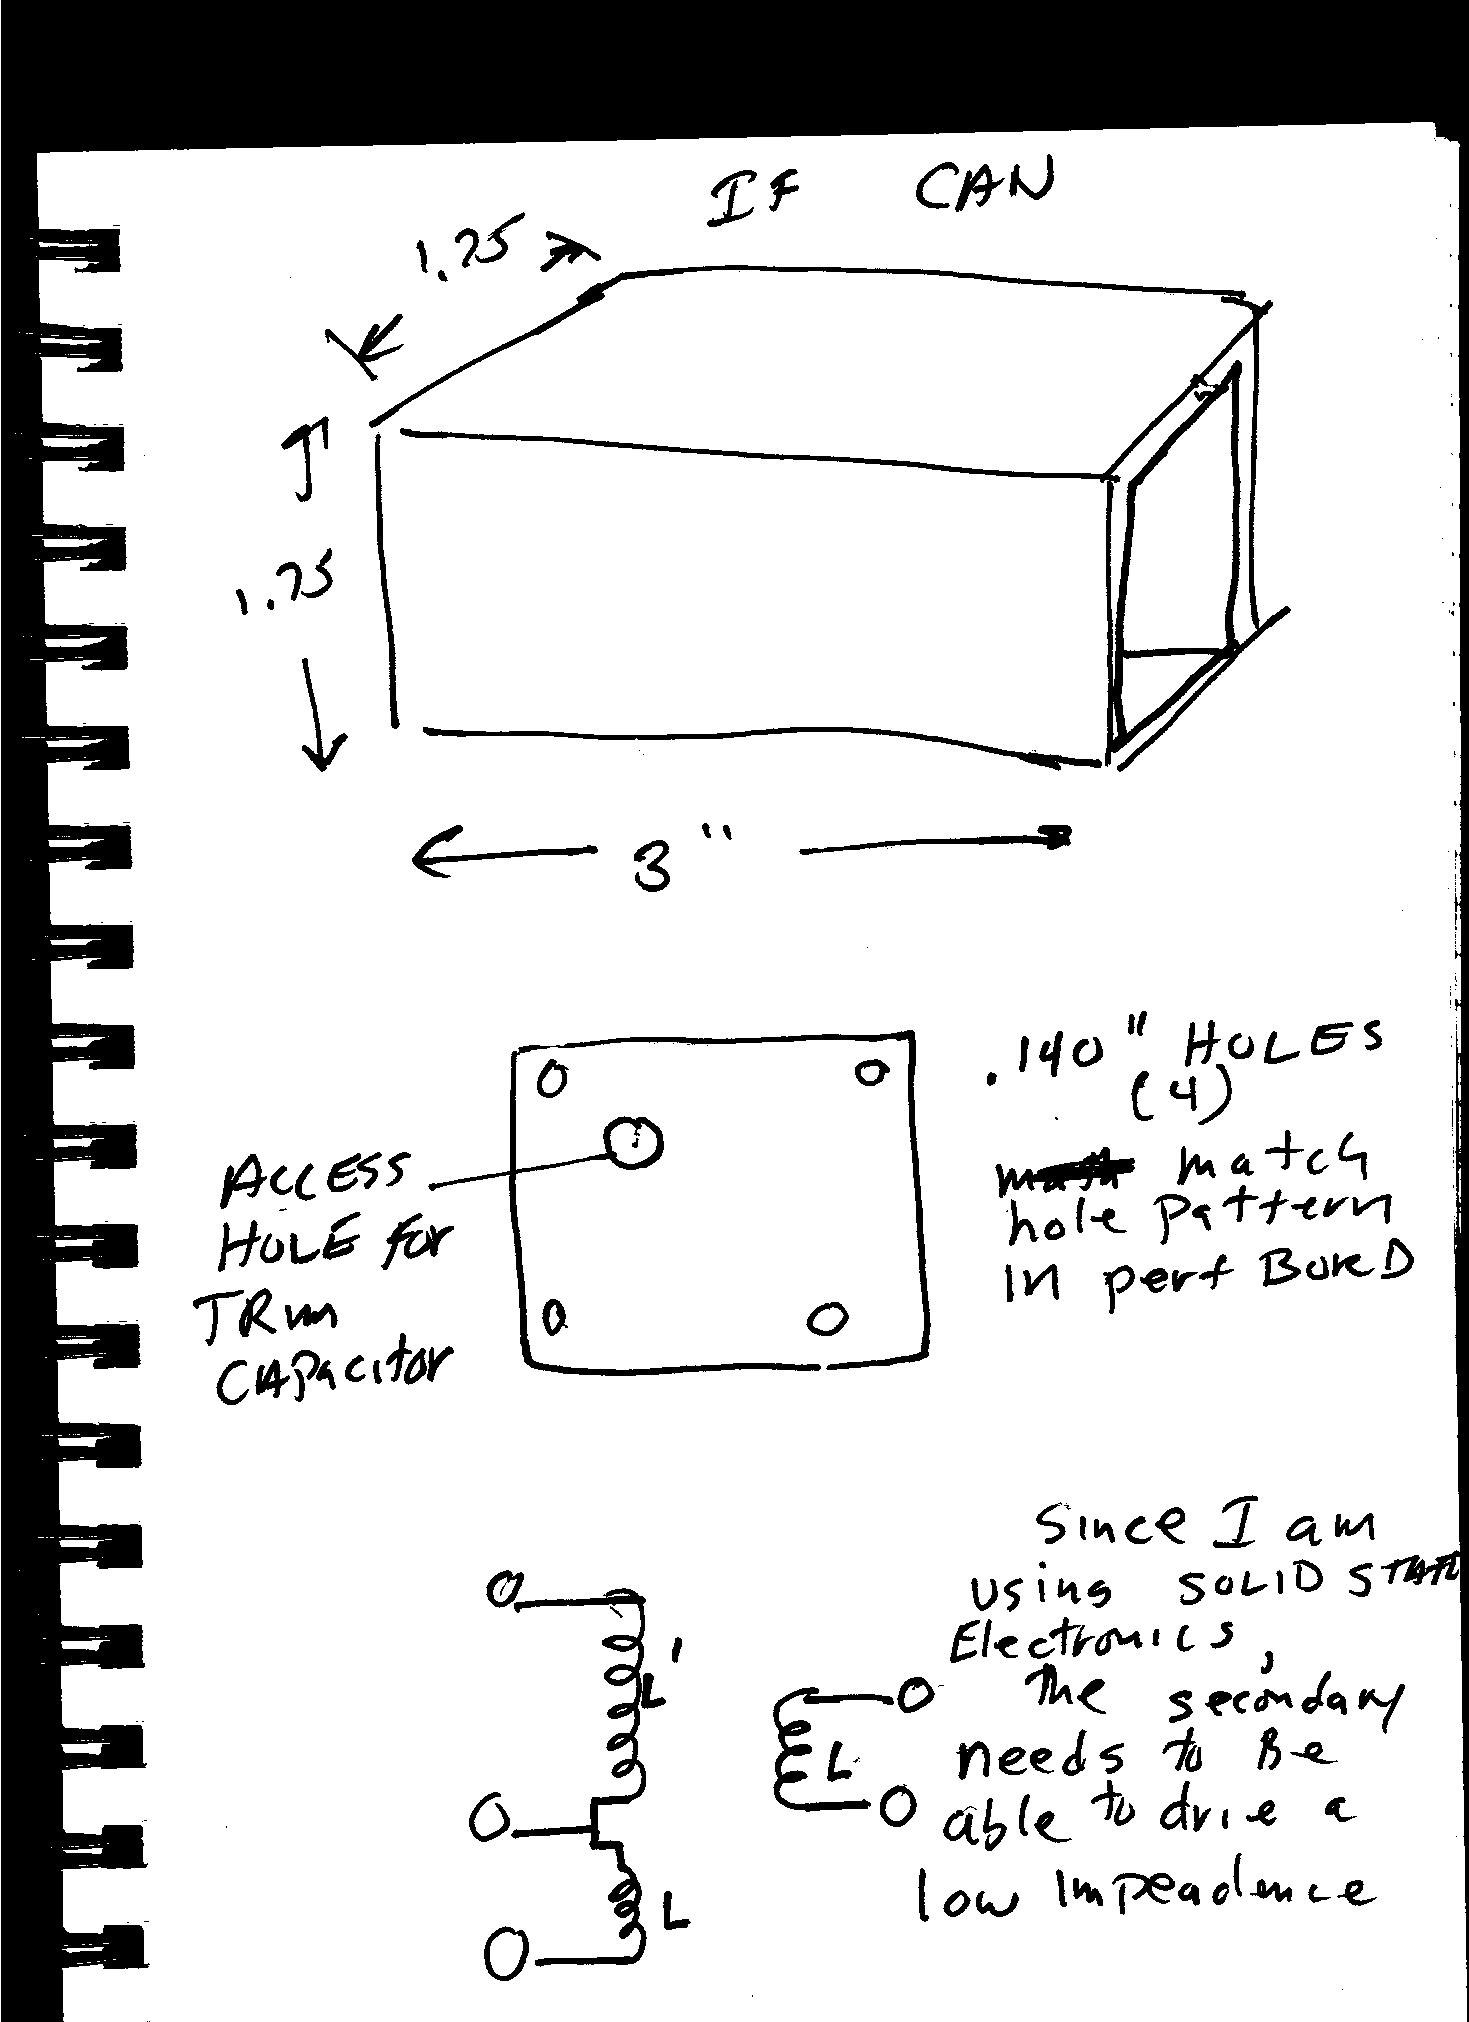 IF CAN
1.75
1.75
3"
.140" HOLES
(4)
match
hole pattern
IN perf BOreD
ACCESS
HOLE for
TRim
CAPacitor
Since I am
using SOLID STATE
Electronics,
The secondary
needs to Be
able to drie a
low Impeadence
L'
L
L